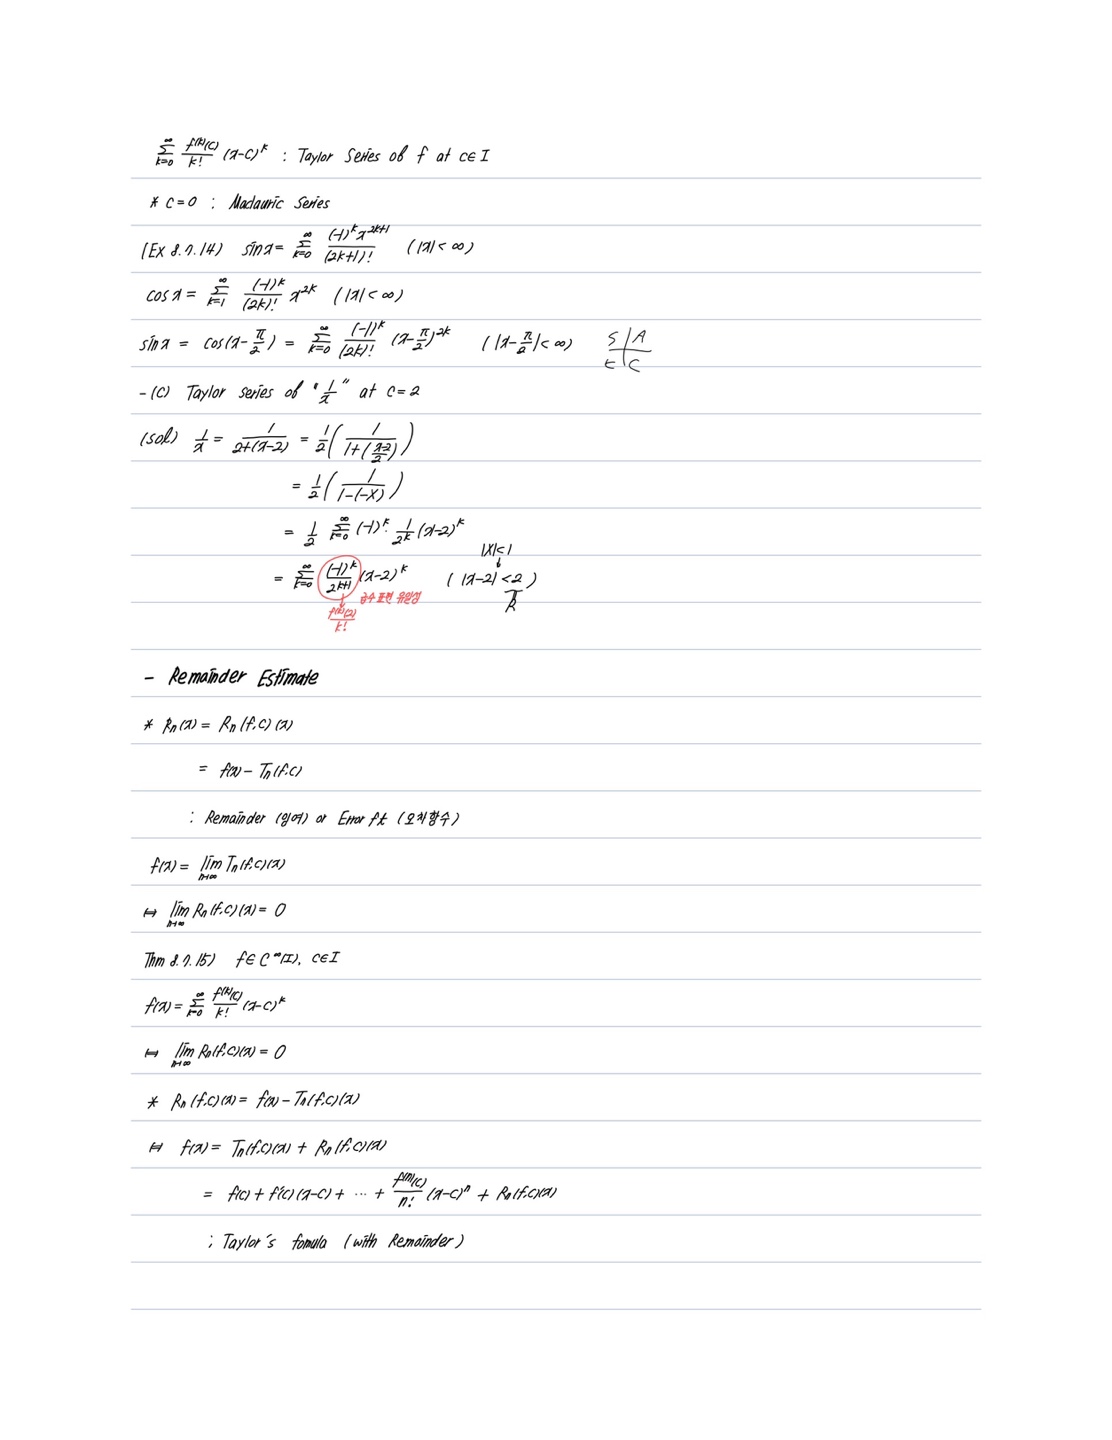 ∞Σk=0 f⁽ᵏ⁾(c)/k! (x-c)ᵏ : Taylor Series of f at c∈I
* c=0 : Maclauric Series
(Ex 8.7.14) sin x = ∞Σk=0 (-1)ᵏx²ᵏ⁺¹/(2k+1)! (|x|<∞)
cos x = ∞Σk=1 (-1)ᵏ/(2k)! x²ᵏ (|x|<∞)
sin x = cos(x-π/2) = ∞Σk=0 (-1)ᵏ/(2k)! (x-π/2)²ᵏ (|x-π/2|<∞) S A
t C
- (c) Taylor series of "1/x" at c=2
(sol) 1/x = 1/(2+(x-2)) = 1/2 (1/(1+((x-2)/2)))
= 1/2 (1/(1-(-X)))
= 1/2 ∞Σk=0 (-1)ᵏ· 1/2ᵏ (x-2)ᵏ
|X|<1
= ∞Σk=0 (-1)ᵏ/2ᵏ⁺¹ (x-2)ᵏ (|x-2|<2)
급수 표현 유일성 R
f⁽ᵏ⁾(2)/k!
- Remainder Estimate
* Rₙ(x) = Rₙ(f,c)(x)
= f(x) - Tₙ(f,c)
: Remainder (잉여) or Error ft (오차함수)
f(x) = lim n→∞ Tₙ(f,c)(x)
⇔ lim n→∞ Rₙ(f,c)(x) = 0
Thm 8.7.15) f∈C^∞(I), c∈I
f(x) = ∞Σk=0 f⁽ᵏ⁾(c)/k! (x-c)ᵏ
⇔ lim n→∞ Rₙ(f,c)(x) = 0
* Rₙ(f,c)(x) = f(x) - Tₙ(f,c)(x)
⇔ f(x) = Tₙ(f,c)(x) + Rₙ(f,c)(x)
= f(c) + f'(c)(x-c) + ··· + f⁽ⁿ⁾(c)/n! (x-c)ⁿ + Rₙ(f,c)(x)
; Taylor's fomula (with Remainder)